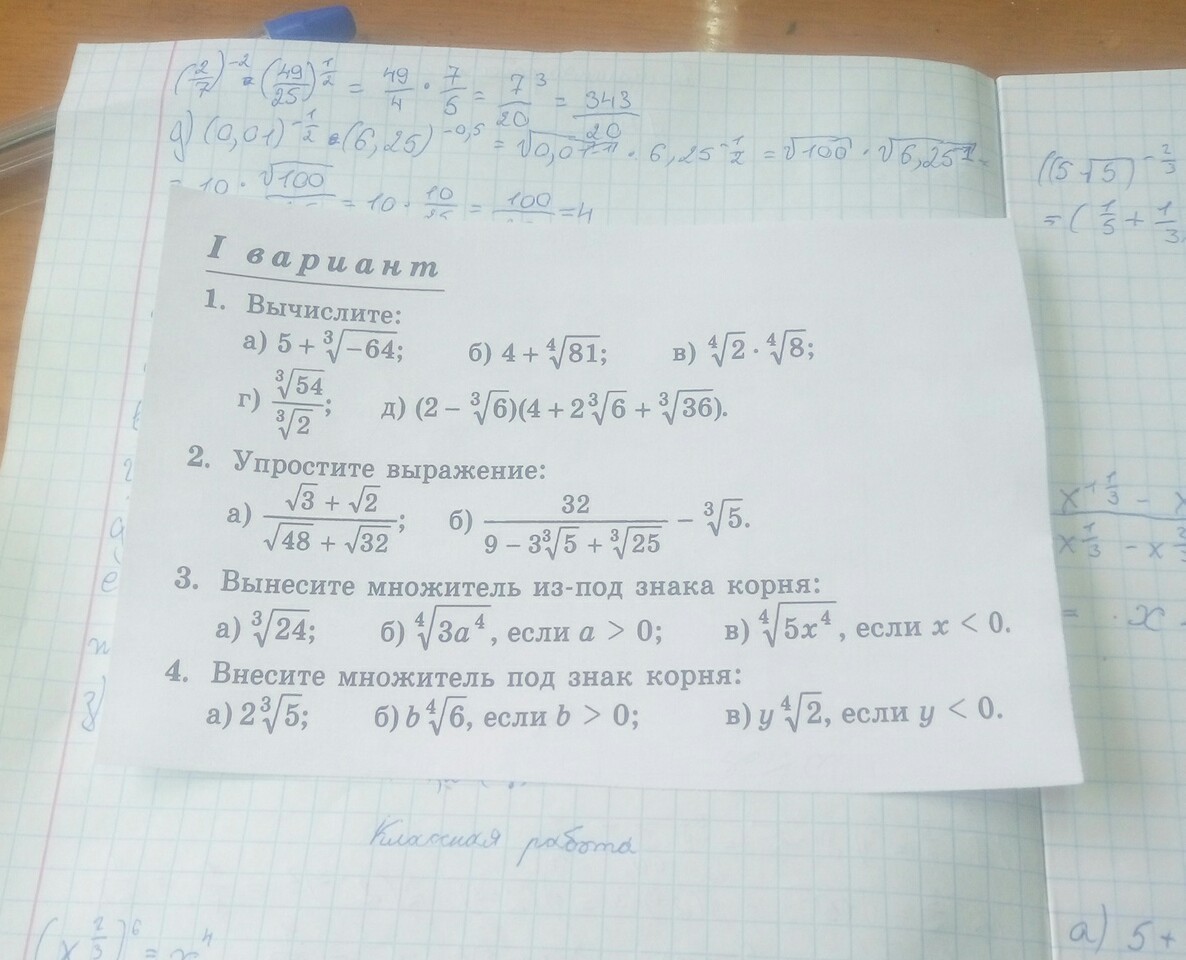 (2/7)⁻² · (49/25)^(1/2) = 49/4 · 7/5 = 7³/20 = 343/20
д) (0,01)^(-1/2) · (6,25)^(-0,5) =
= 10 · √100 = 10 · 10 = 100 = 4
((5√5)^(-2/3)
= (1/5 + 1/3
I вариант
1. Вычислите:
а) 5 + ∛(−64); б) 4 + ∜81; в) ∜2 · ∜8;
г) ∛54/∛2; д) (2 − ∛6)(4 + 2∛6 + ∛36).
2. Упростите выражение:
а) (√3 + √2)/(√48 + √32); б) 32/(9 − 3∛5 + ∛25) − ∛5.
3. Вынесите множитель из-под знака корня:
а) ∛24; б) ∜(3a⁴), если a > 0; в) ∜(5x⁴), если x < 0.
4. Внесите множитель под знак корня:
а) 2∛5; б) b∜6, если b > 0; в) y∜2, если y < 0.
Классная работа
(x^(2/3))⁶ = x⁴
а) 5 +